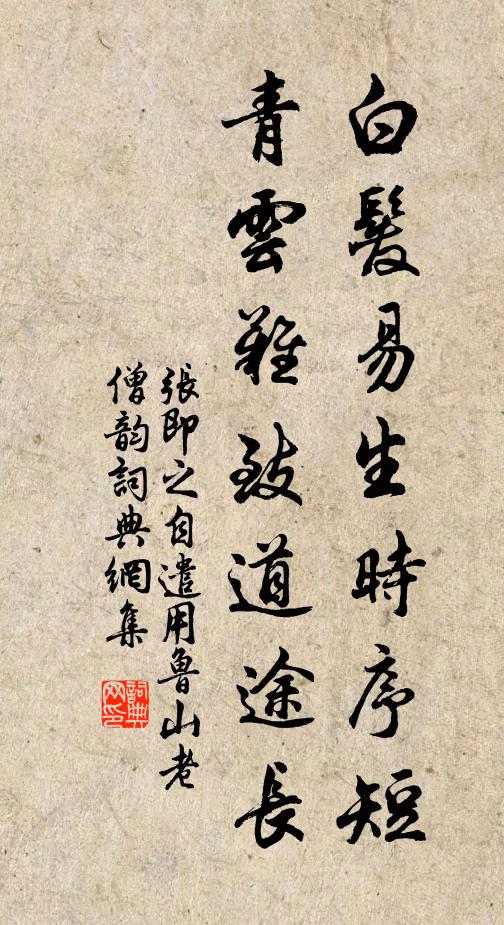 白髮易生時序短
青雲難致道途長
張即之自遣用魯山老
僧韵詞典網集
詞典
网印